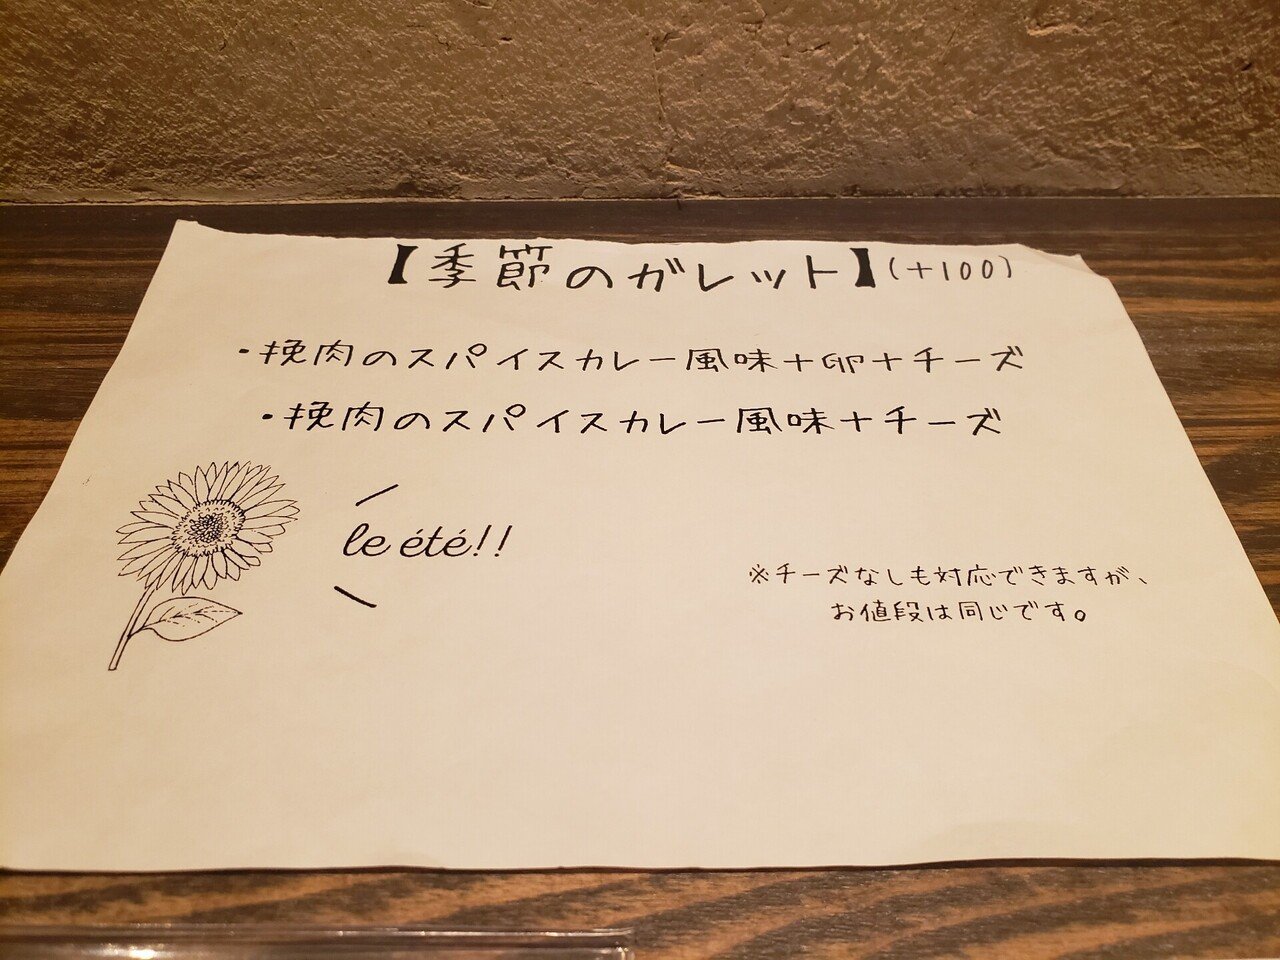 【季節のガレット】(+100)
・挽肉のスパイスカレー風味+卵+チーズ
・挽肉のスパイスカレー風味+チーズ
le été!!
※チーズなしも対応できますが、
お値段は同じです。